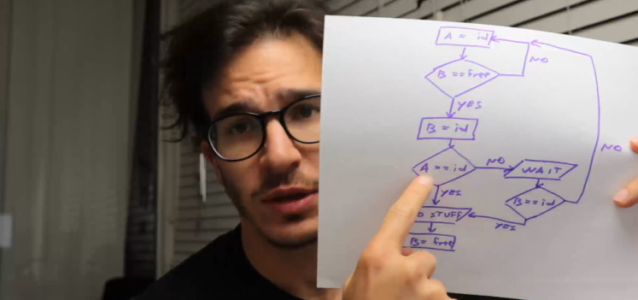 A = id
B == free
NO
YES
B = id
A == id
NO
WAIT
YES
B == id
NO
YES
STUFF
B = free